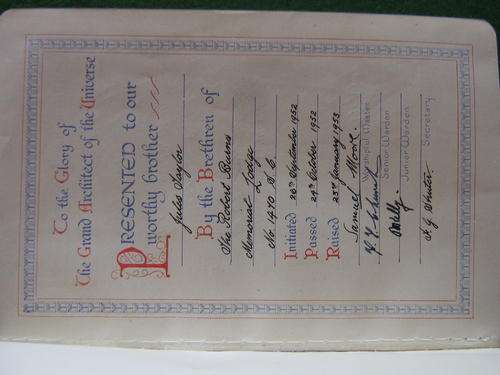 To the Glory of
The Grand Architect of the Universe
PRESENTED to our
worthy brother
Jules Taylor
By the Brethren of
The Robert Burns
Memorial Lodge
No. 1470 S.C.
Initiated 26th September 1952
Passed 24th October 1952
Raised 23rd January 1953
Samuel Moore.
Worshipful Master
Senior Warden
Junior Warden
Secretary